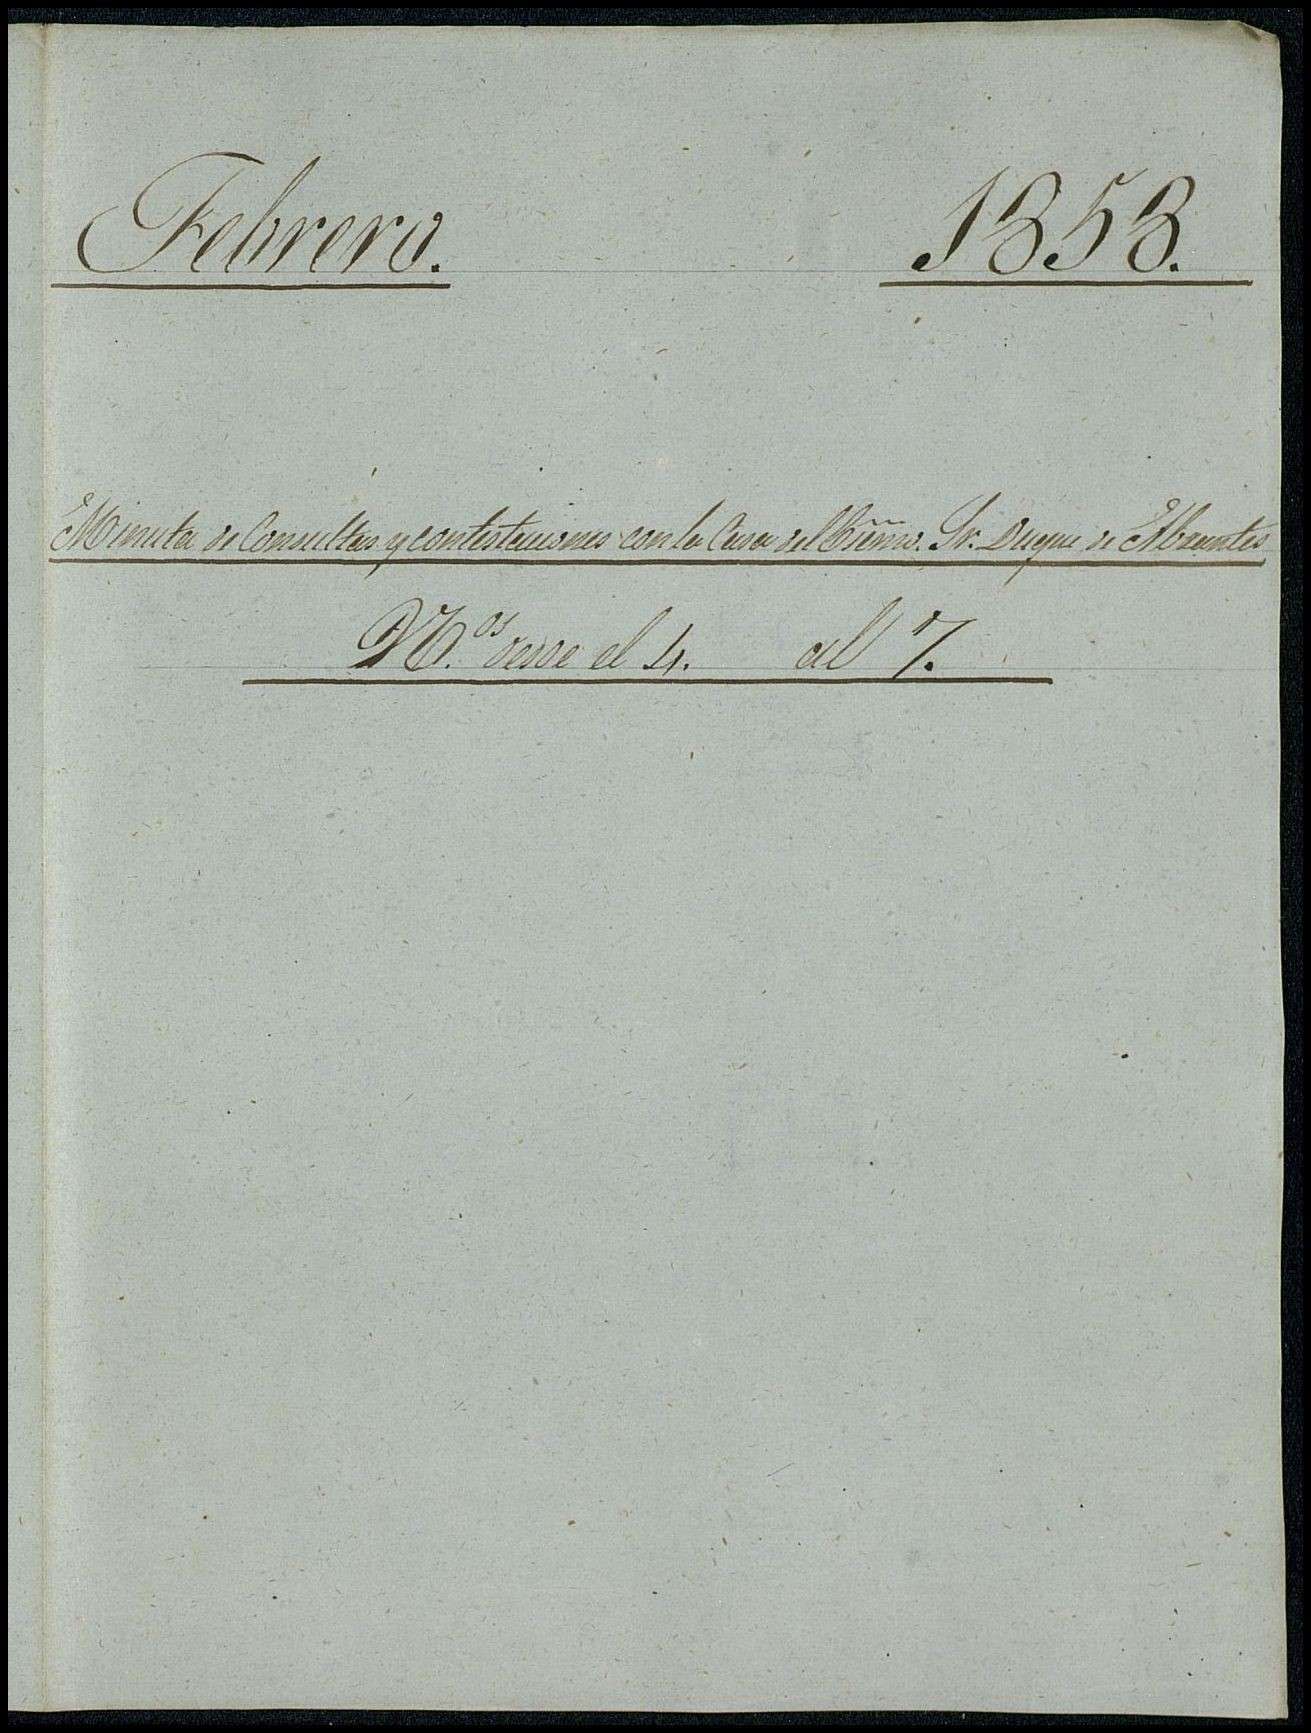 Febrero. 1858.
Minuta de Consultas y contestaciones con la Casa del Excmo. Sr. Duque de Abrantes
N.os desde el 4. al 7.